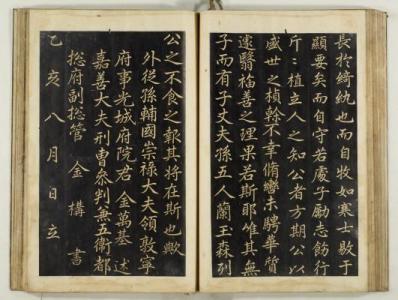 長於綺紈也而自牧如寒士敭于
顯要矣而自守若處子勵志飭行
斤〻植立人之知公者方期公以
盛世之楨幹不幸脩轡未騁華質
遽翳福善之理果若斯耶雖其無
子而有子丈夫孫五人蘭玉森列
公之不食之報其將在斯也歟
外從孫輔國崇祿大夫領敦寧
府事光城府院君 金萬基 述
嘉善大夫刑曹參判兼五衛都
捴府副捴管 金構 書
乙亥八月日立